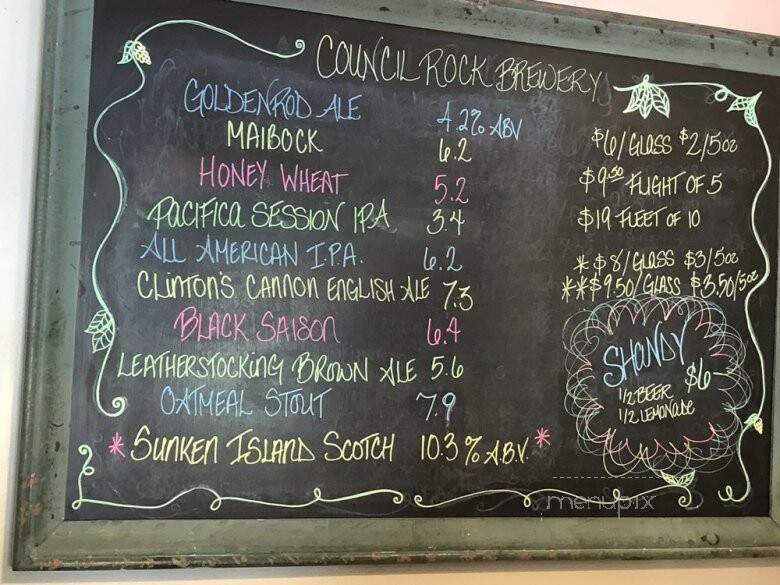 COUNCIL ROCK BREWERY
GOLDENROD ALE 4.2% ABV
MAIBOCK 6.2
HONEY WHEAT 5.2
PACIFICA SESSION IPA 3.4
ALL AMERICAN I.P.A. 6.2
CLINTON'S CANNON ENGLISH ALE 7.3
BLACK SAISON 6.4
LEATHERSTOCKING BROWN ALE 5.6
OATMEAL STOUT 7.9
* SUNKEN ISLAND SCOTCH 10.3% A.B.V. *
$6/GLASS $2/5oz
$9.50 FLIGHT OF 5
$19 FLEET OF 10
* $8/GLASS $3/5oz
** $9.50/GLASS $3.50/5oz
SHANDY
$6
1/2 BEER
1/2 LEMONADE
menupix